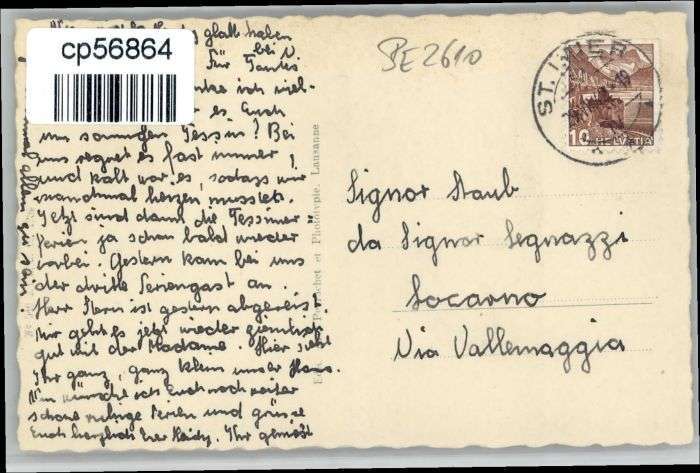 glatt haben
bei
Für Tantis
cp56864
ich viel-
es Euch
im sonnigen Tessin? Bei
uns regnet es fast immer
und kalt war es, sodass wir
manchmal heizen mussten.
Jetzt sind dann die Tessiner-
ferien ja schon bald wieder
vorbei. Gestern kam bei uns
der dritte Feriengast an.
Herr Kern ist gestern abgereist.
Mir geht es jetzt wieder ziemlich
gut mit der Madame. Hier seht
Ihr ganz, ganz klein unser Haus.
Nun wünsche ich Euch noch weiter
schöne ruhige Ferien und grüsse
Euch herzlich Eure Heidy. Ihr
Perrochet et Phototypie, Lausanne
PE2610
ST. IMIER
10
HELVETIA
Signor Staub
da Signor Segnazzi
Locarno
Via Vallemaggia